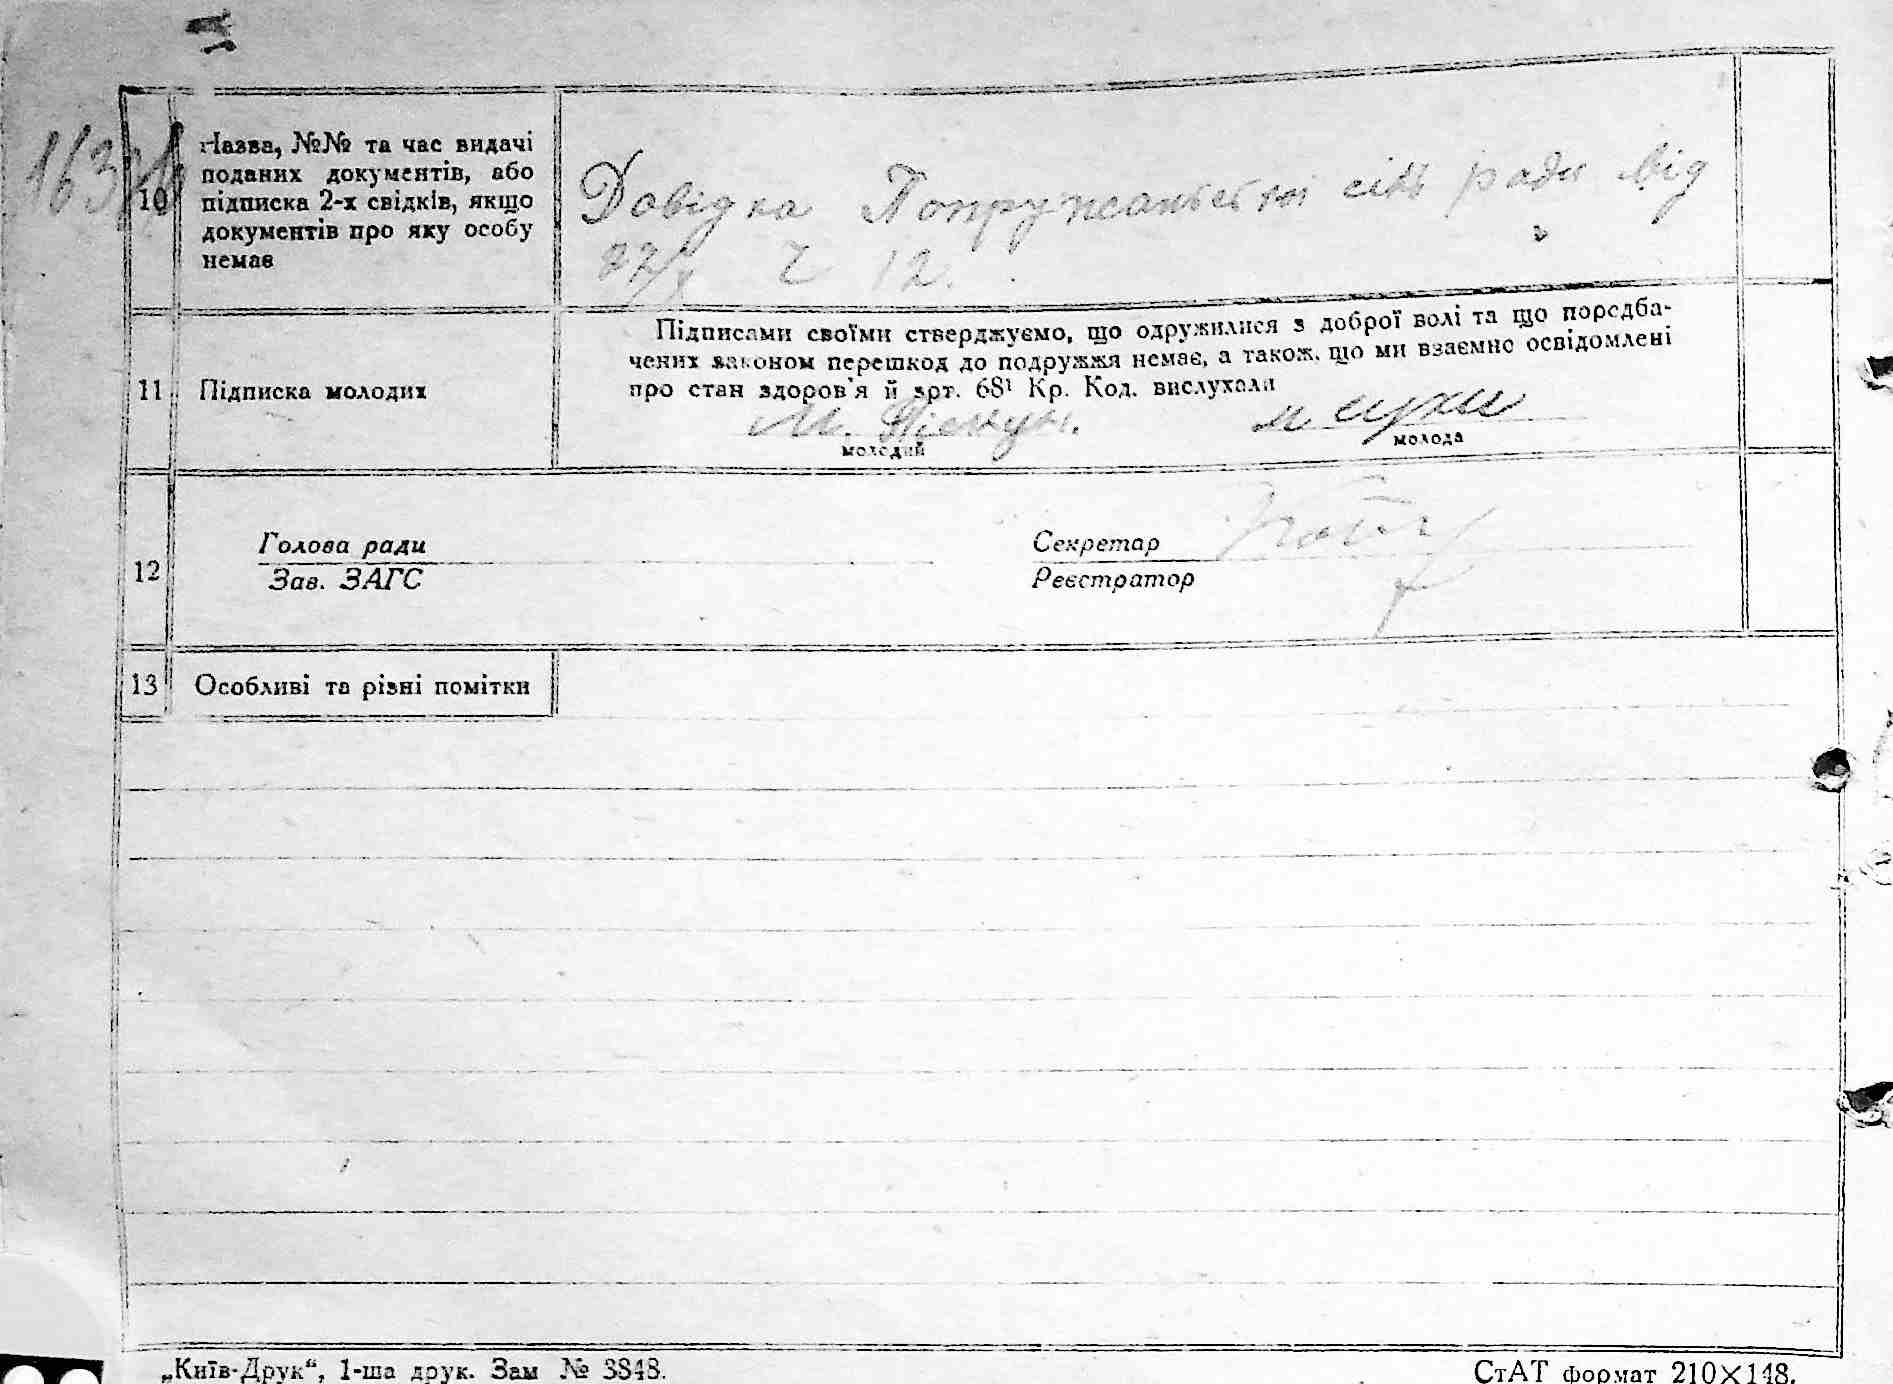 163
10
Назва, №№ та час видачі
поданих документів, або
підписка 2-х свідків, якщо
документів про яку особу
немає
Довідка Попружанської сіль ради від
27/X Ч 12.
11
Підписка молодих
Підписами своїми стверджуємо, що одружилися з доброї волі та що передба-
чених законом перешкод до подружжя немає, а також, що ми взаємно освідомлені
про стан здоров'я й арт. 68¹ Кр. Код. вислухали
М.
молодий
молода
12
Голова ради
Зав. ЗАГС
Секретар
Реєстратор
13
Особливі та різні помітки
„Київ-Друк“, 1-ша друк. Зам № 3848.
СтАТ формат 210×148.